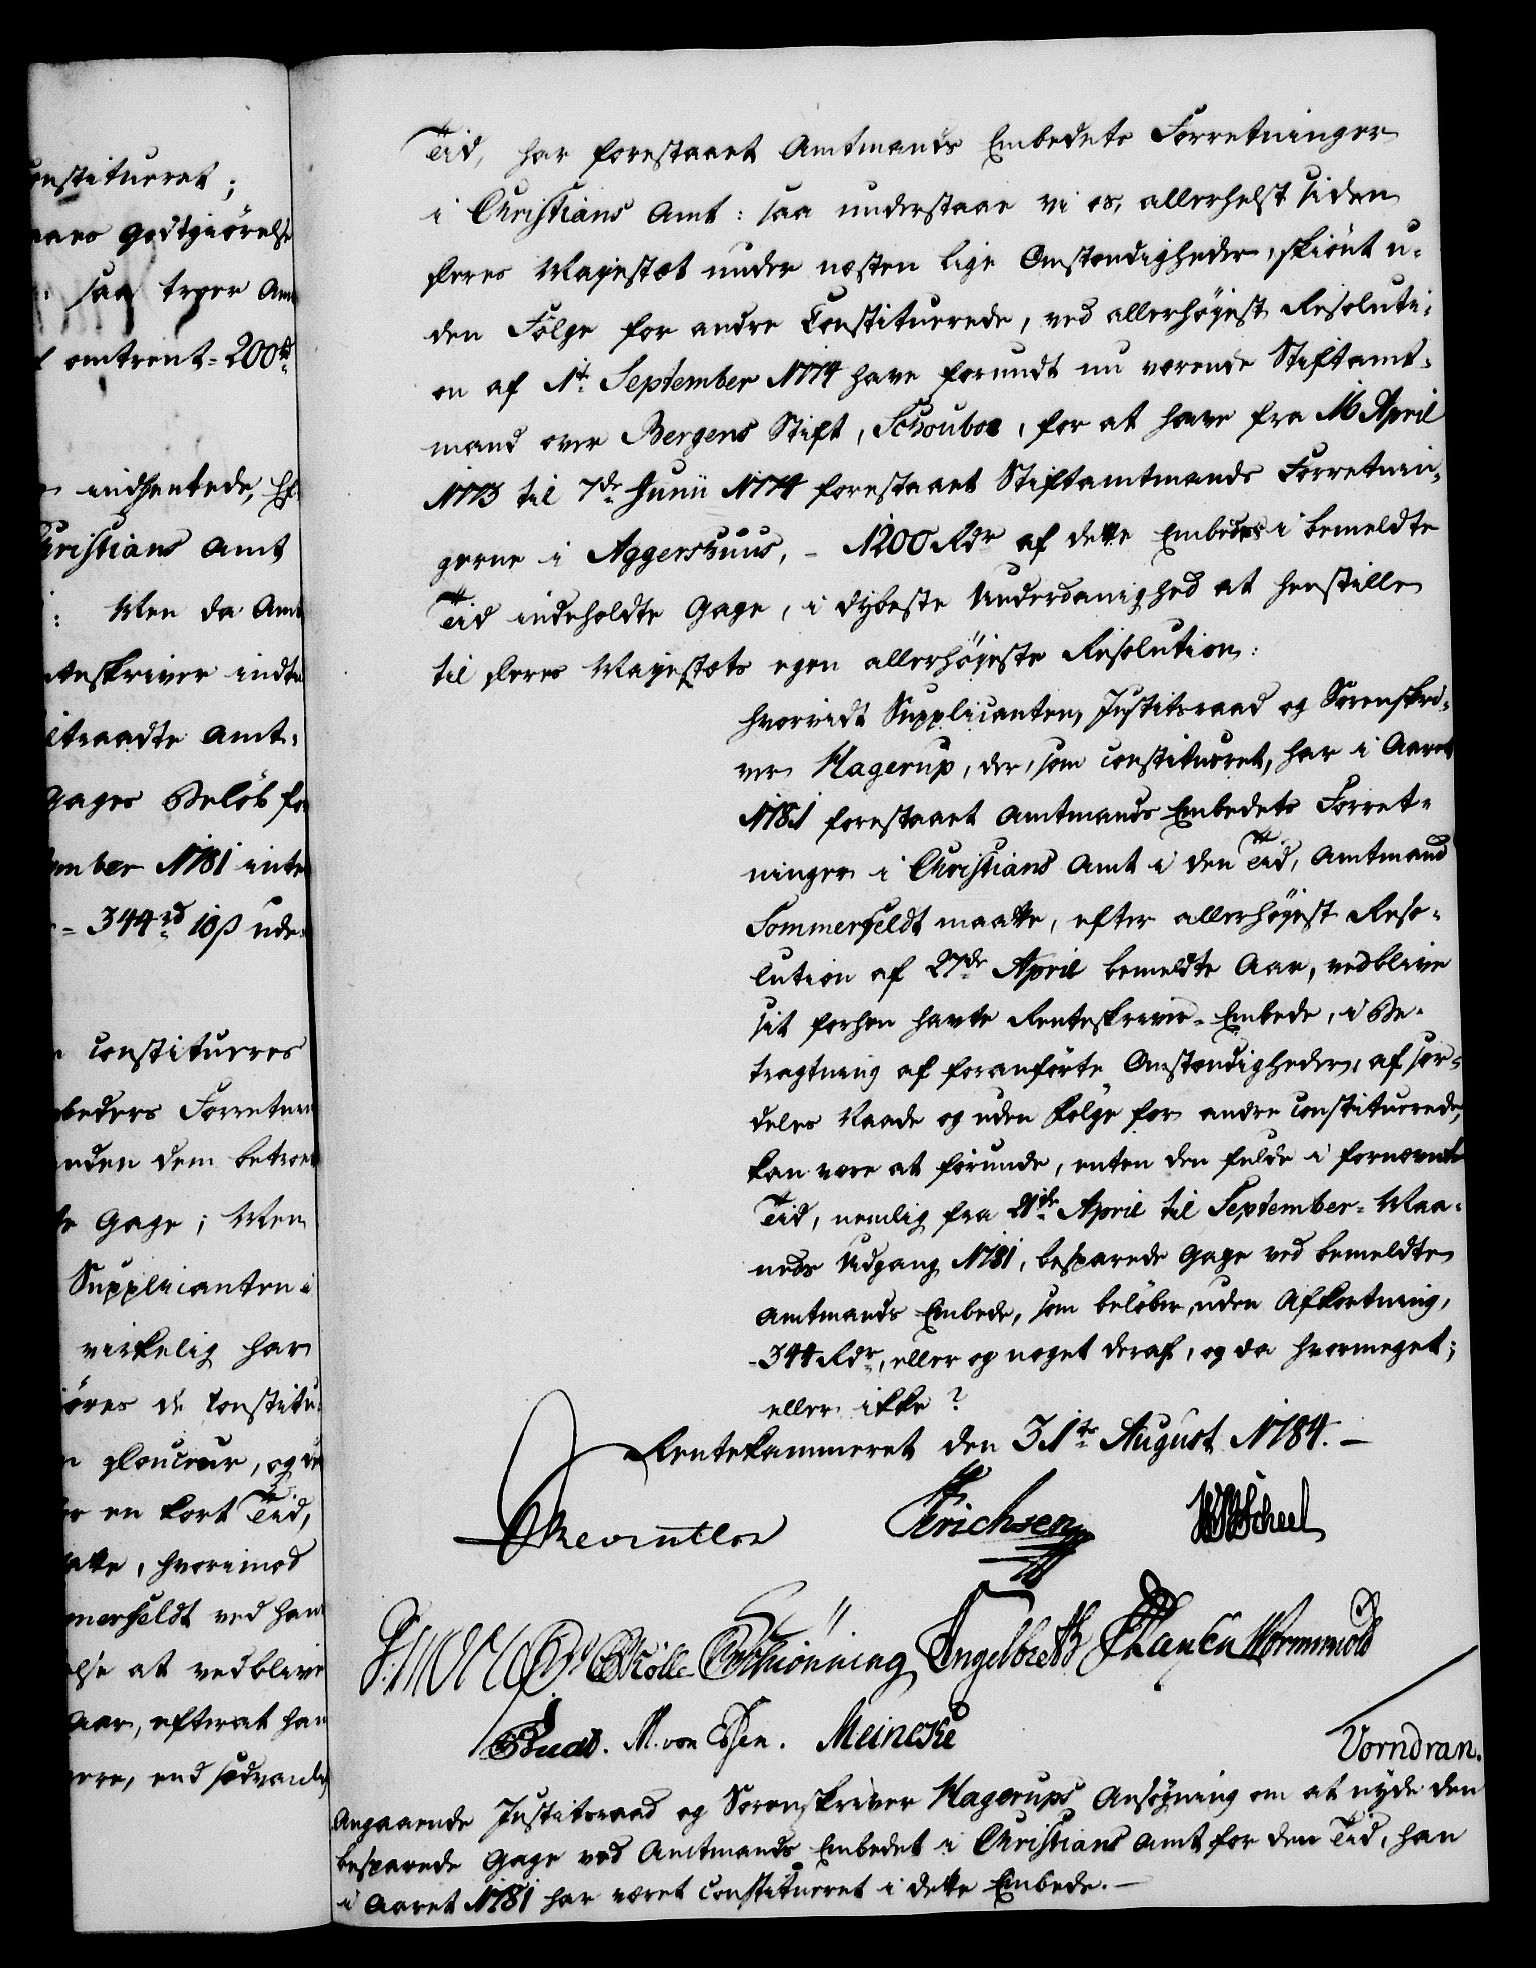 onstitueret;
aars Godtgiörelse
: saa troer Am
omtrent = 200 rd
indhentede, Ef
Christians Amt
: Men da Amt
nteskriver indtr
ltraadte Amt-
Gages Beløb fo
ember 1781 inte
= 344 rd 10 ß ude-
constitueres
mbeders Forretnin
anden dem betroet
Gage; Men
Supplicanten i
virkelig har
iöres de Constitu-
Douceur, og de
en kort Tid,
atte, hvorimod
merfeldt ved han
else at vedblive
Aar, efterat han
ere, end sædvanlig
Tid, har forestaaet Amtmands Embedets Forretninger
i Christians Amt: saa understaae vi os, allerhelst siden
Deres Majestæt under næsten lige Omstændigheder, skiönt u-
den Fölge for andre Constituerede, ved allerhöjest Resoluti-
on af 1te September 1774 have forundt nu værende Stiftamt-
mand over Bergens Stift, Schouboe, for at have fra 16 April
1773 til 7de Junii 1774 forestaaet Stiftamtmands Forretnin-
gerne i Aggershuus, - 1200 Rdr af dette Embedes i bemeldte
Tid indeholdte Gage, i dybeste Underdanighed at henstille
til Deres Majestæts egen allerhöjeste Resolution:
hvorvidt Supplicanten, Justitsraad og Sorenskri-
ver Hagerup, der, som constitueret, har i Aaret
1781 forestaaet Amtmands Embedets Forret-
ninger i Christians Amt i den Tid, Amtmand
Sommerfeldt maatte, efter allerhöjest Reso-
lution af 27de April bemeldte Aar, vedblive
sit forhen havte Renteskriver-Embede, i Be-
tragtning af foranförte Omstændigheder, af sær-
deles Naade og uden Fölge for andre Constituerede,
kan være at forunde, enten den fulde i fornævnte
Tid, nemlig fra 21de April til September-Maa-
neds Udgang 1781, besparede Gage ved bemeldte
Amtmands Embede, som belöber, uden Afkortning,
344 Rdr, eller og noget deraf, og da hvormeget;
eller ikke?
Rentekammeret den 31te August 1784. -
Reventlow Erichsen Scheel
Schiönning Engelbreth Wormskiold
M. von Essen. Meincke
Vorndran.
Angaaende Justitsraad og Sorenskriver Hagerups Ansögning om at nyde den
besparede Gage ved Amtmands Embedet i Christians Amt for den Tid, han
i Aaret 1781 har været constitueret i dette Embede. -